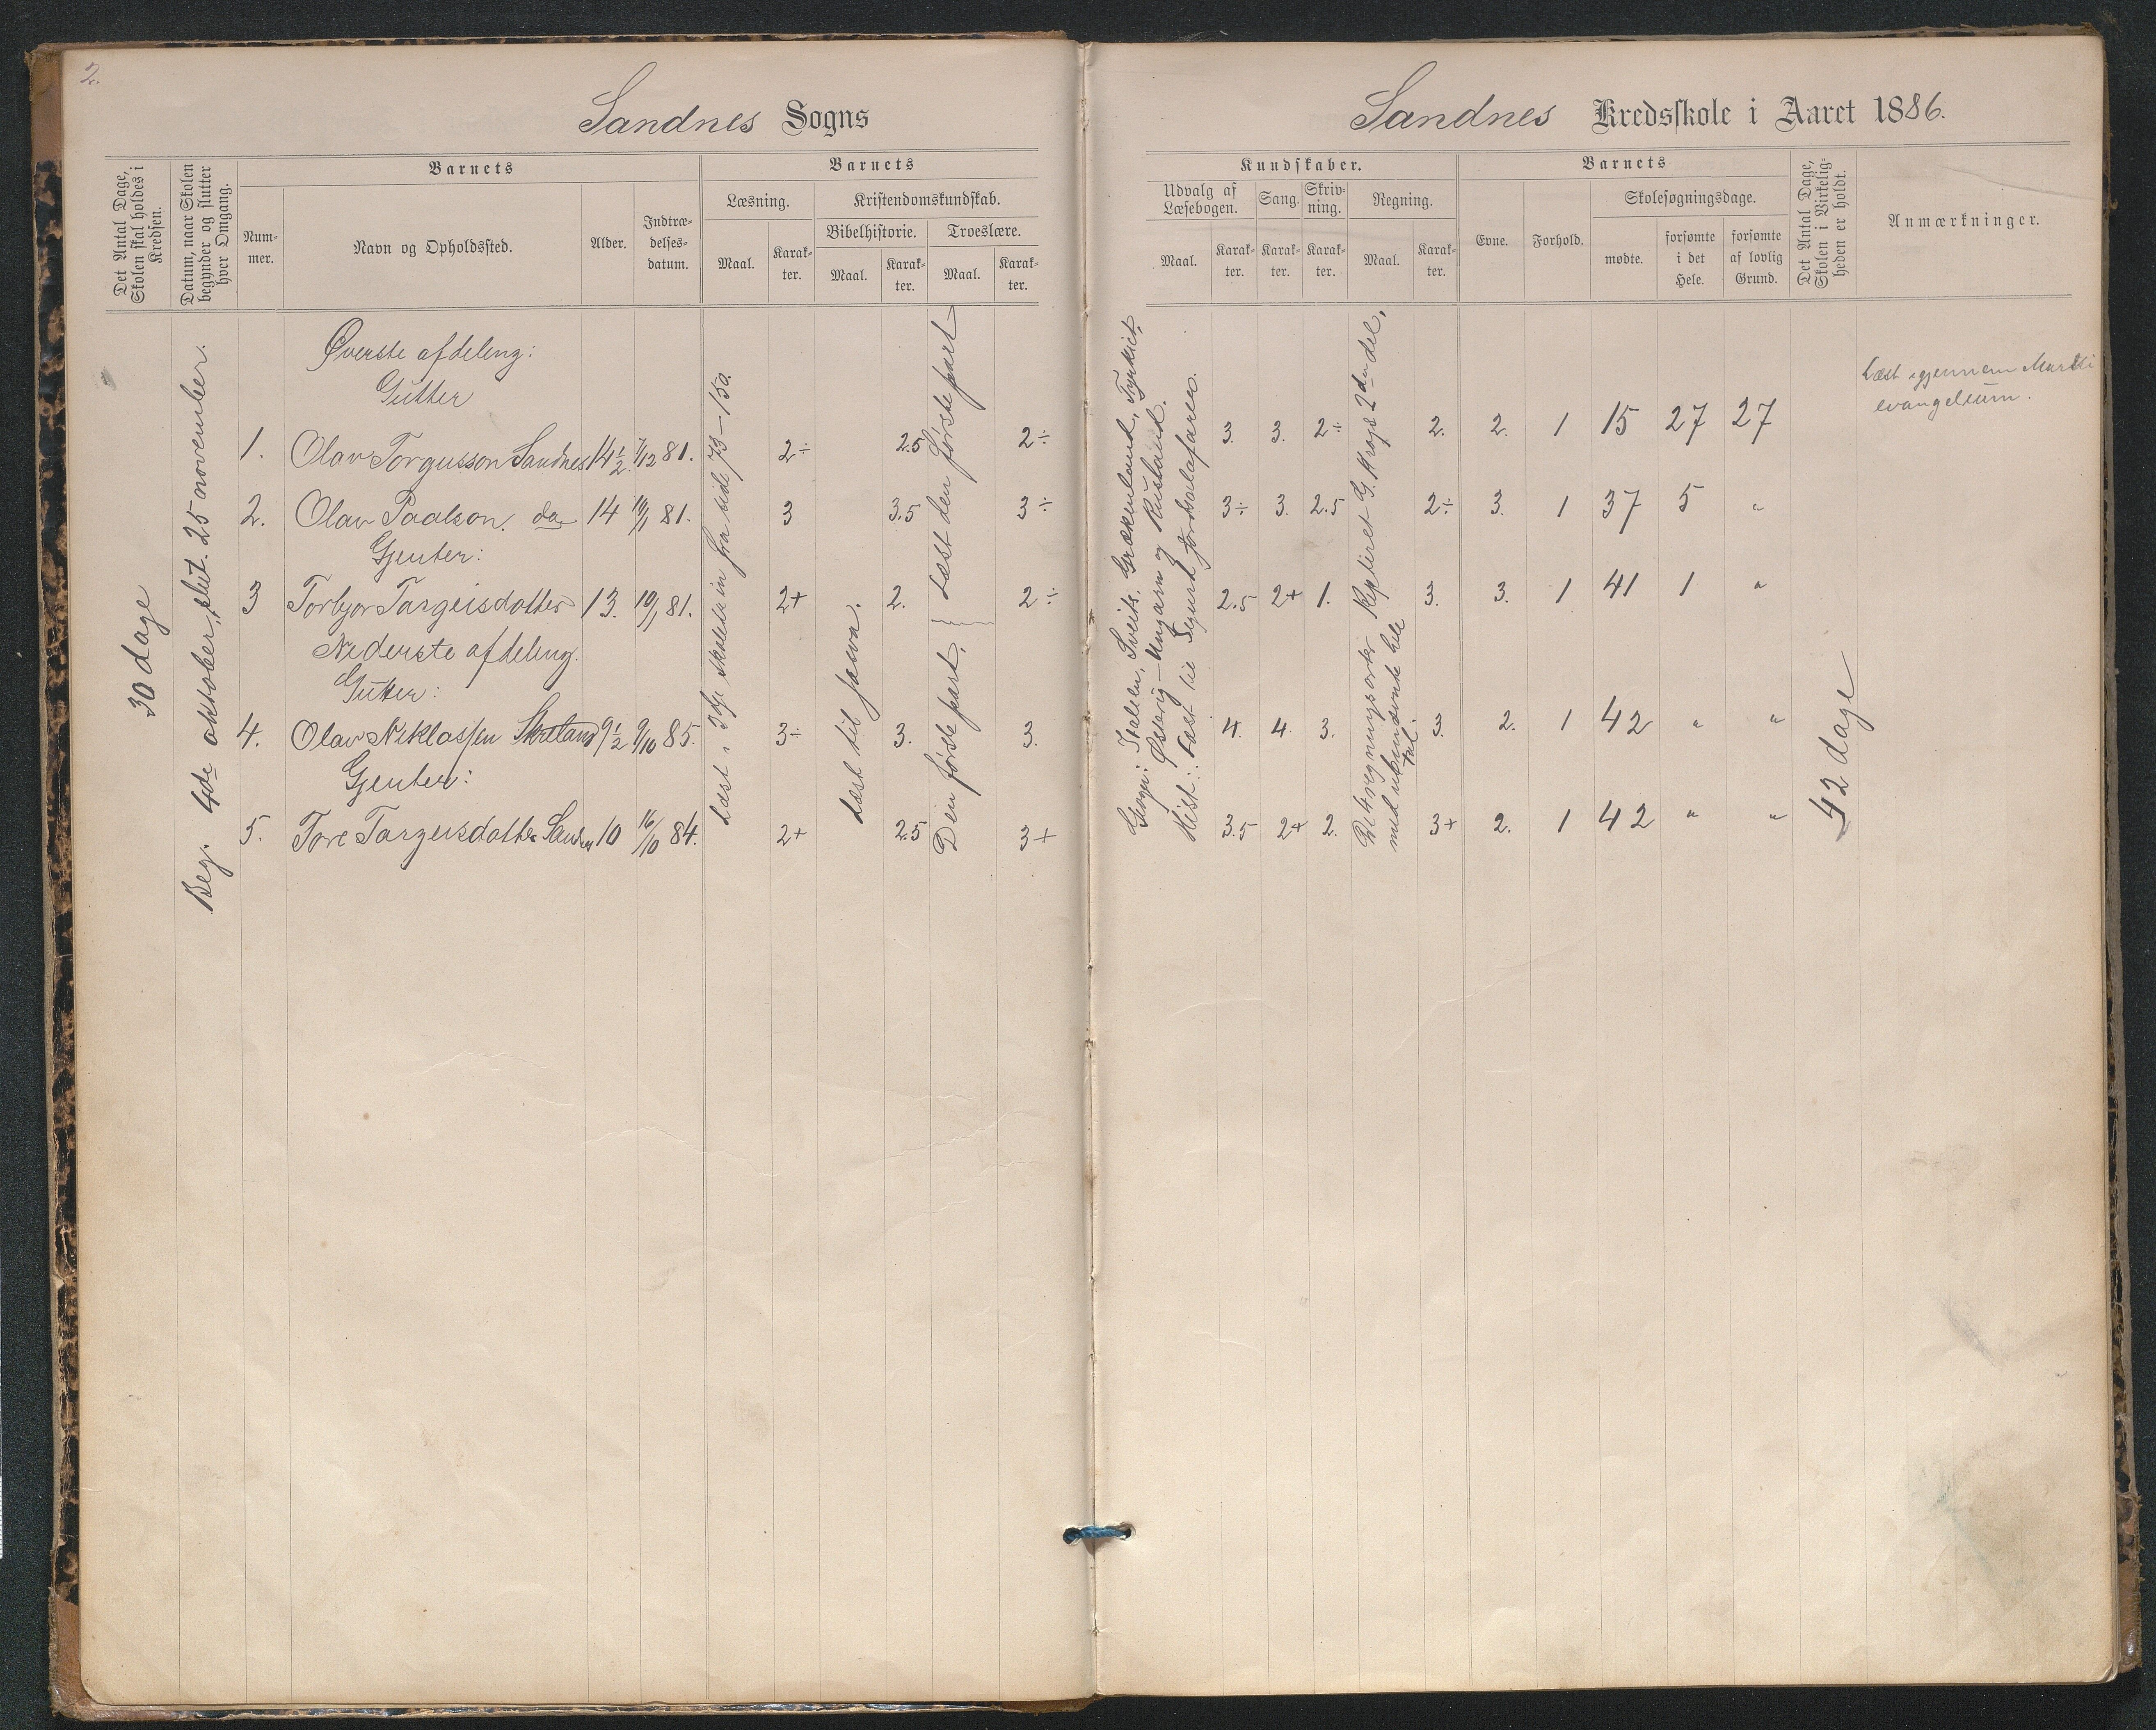 2.
Sandnes Sogns
Sandnes Kredsskole i Aaret 1886.
Det Antal Dage, Skolen skal holdes i Kredsen.
Datum, naar Skolen begynder og slutter hver Omgang.
Barnets
Num-
mer.
Navn og Opholdssted.
Alder.
Indtræ-
delses-
datum.
Barnets
Læsning.
Maal.
Karak-
ter.
Kristendomskundskab.
Bibelhistorie.
Maal.
Karak-
ter.
Troeslære.
Maal.
Karak-
ter.
Kundskaber.
Udvalg af
Læsebogen.
Maal.
Karak-
ter.
Sang.
Karak-
ter.
Skriv-
ning.
Karak-
ter.
Regning.
Maal.
Karak-
ter.
Barnets
Evne.
Forhold.
Skolesøgningsdage.
mødte.
forsømte
i det
Hele.
forsømte
af lovlig
Grund.
Det Antal Dage, Skolen i Virkelig-
heden er holdt.
Anmærkninger.
30 dage
Beg. 4de oktober, slut. 25 november.
Øverste afdeling:
Gutter
1. Olav Torgusson Sandnes 14½ 1/12 81. 2÷ 2.5 2÷ 3. 3. 2÷ 2. 2. 1 15 27 27
2. Olav Paalson do 14 10/1 81. 3 3.5 3÷ 3÷ 3. 2.5 2÷ 3. 1 37 5 "
Gjenter:
3 Torbjor Targeisdotter 13. 10/1 81. 2+ 2. 2÷ 2.5 2+ 1. 3. 3. 1 41 1 "
Nederste afdeling.
Gutter:
4. Olav Niklassen 9½ 9/10 85. 3÷ 3. 3. 4. 4. 3. 3. 2. 1 42 " "
Gjenter:
5. Tore Targeisdotter Sandnes 10 16/10 84. 2+ 2.5 3+ 3.5 2+ 2. 3+ 2. 1 42 " "
Læst i 3dje skoletrin fra sid 73–150.
Læst til
Læst den første part
Den første part.
Geogr: Italien, Sveits, Grækenland, Tyrkiet,
Østerig–Ungarn og Rusland.
Hist: Læst til Sigurd Jordsalafarer.
Repeteret G. 2den del,
med ubenævnte hele
tal.
42 dage
Læst igjennem Marki
evangelium.